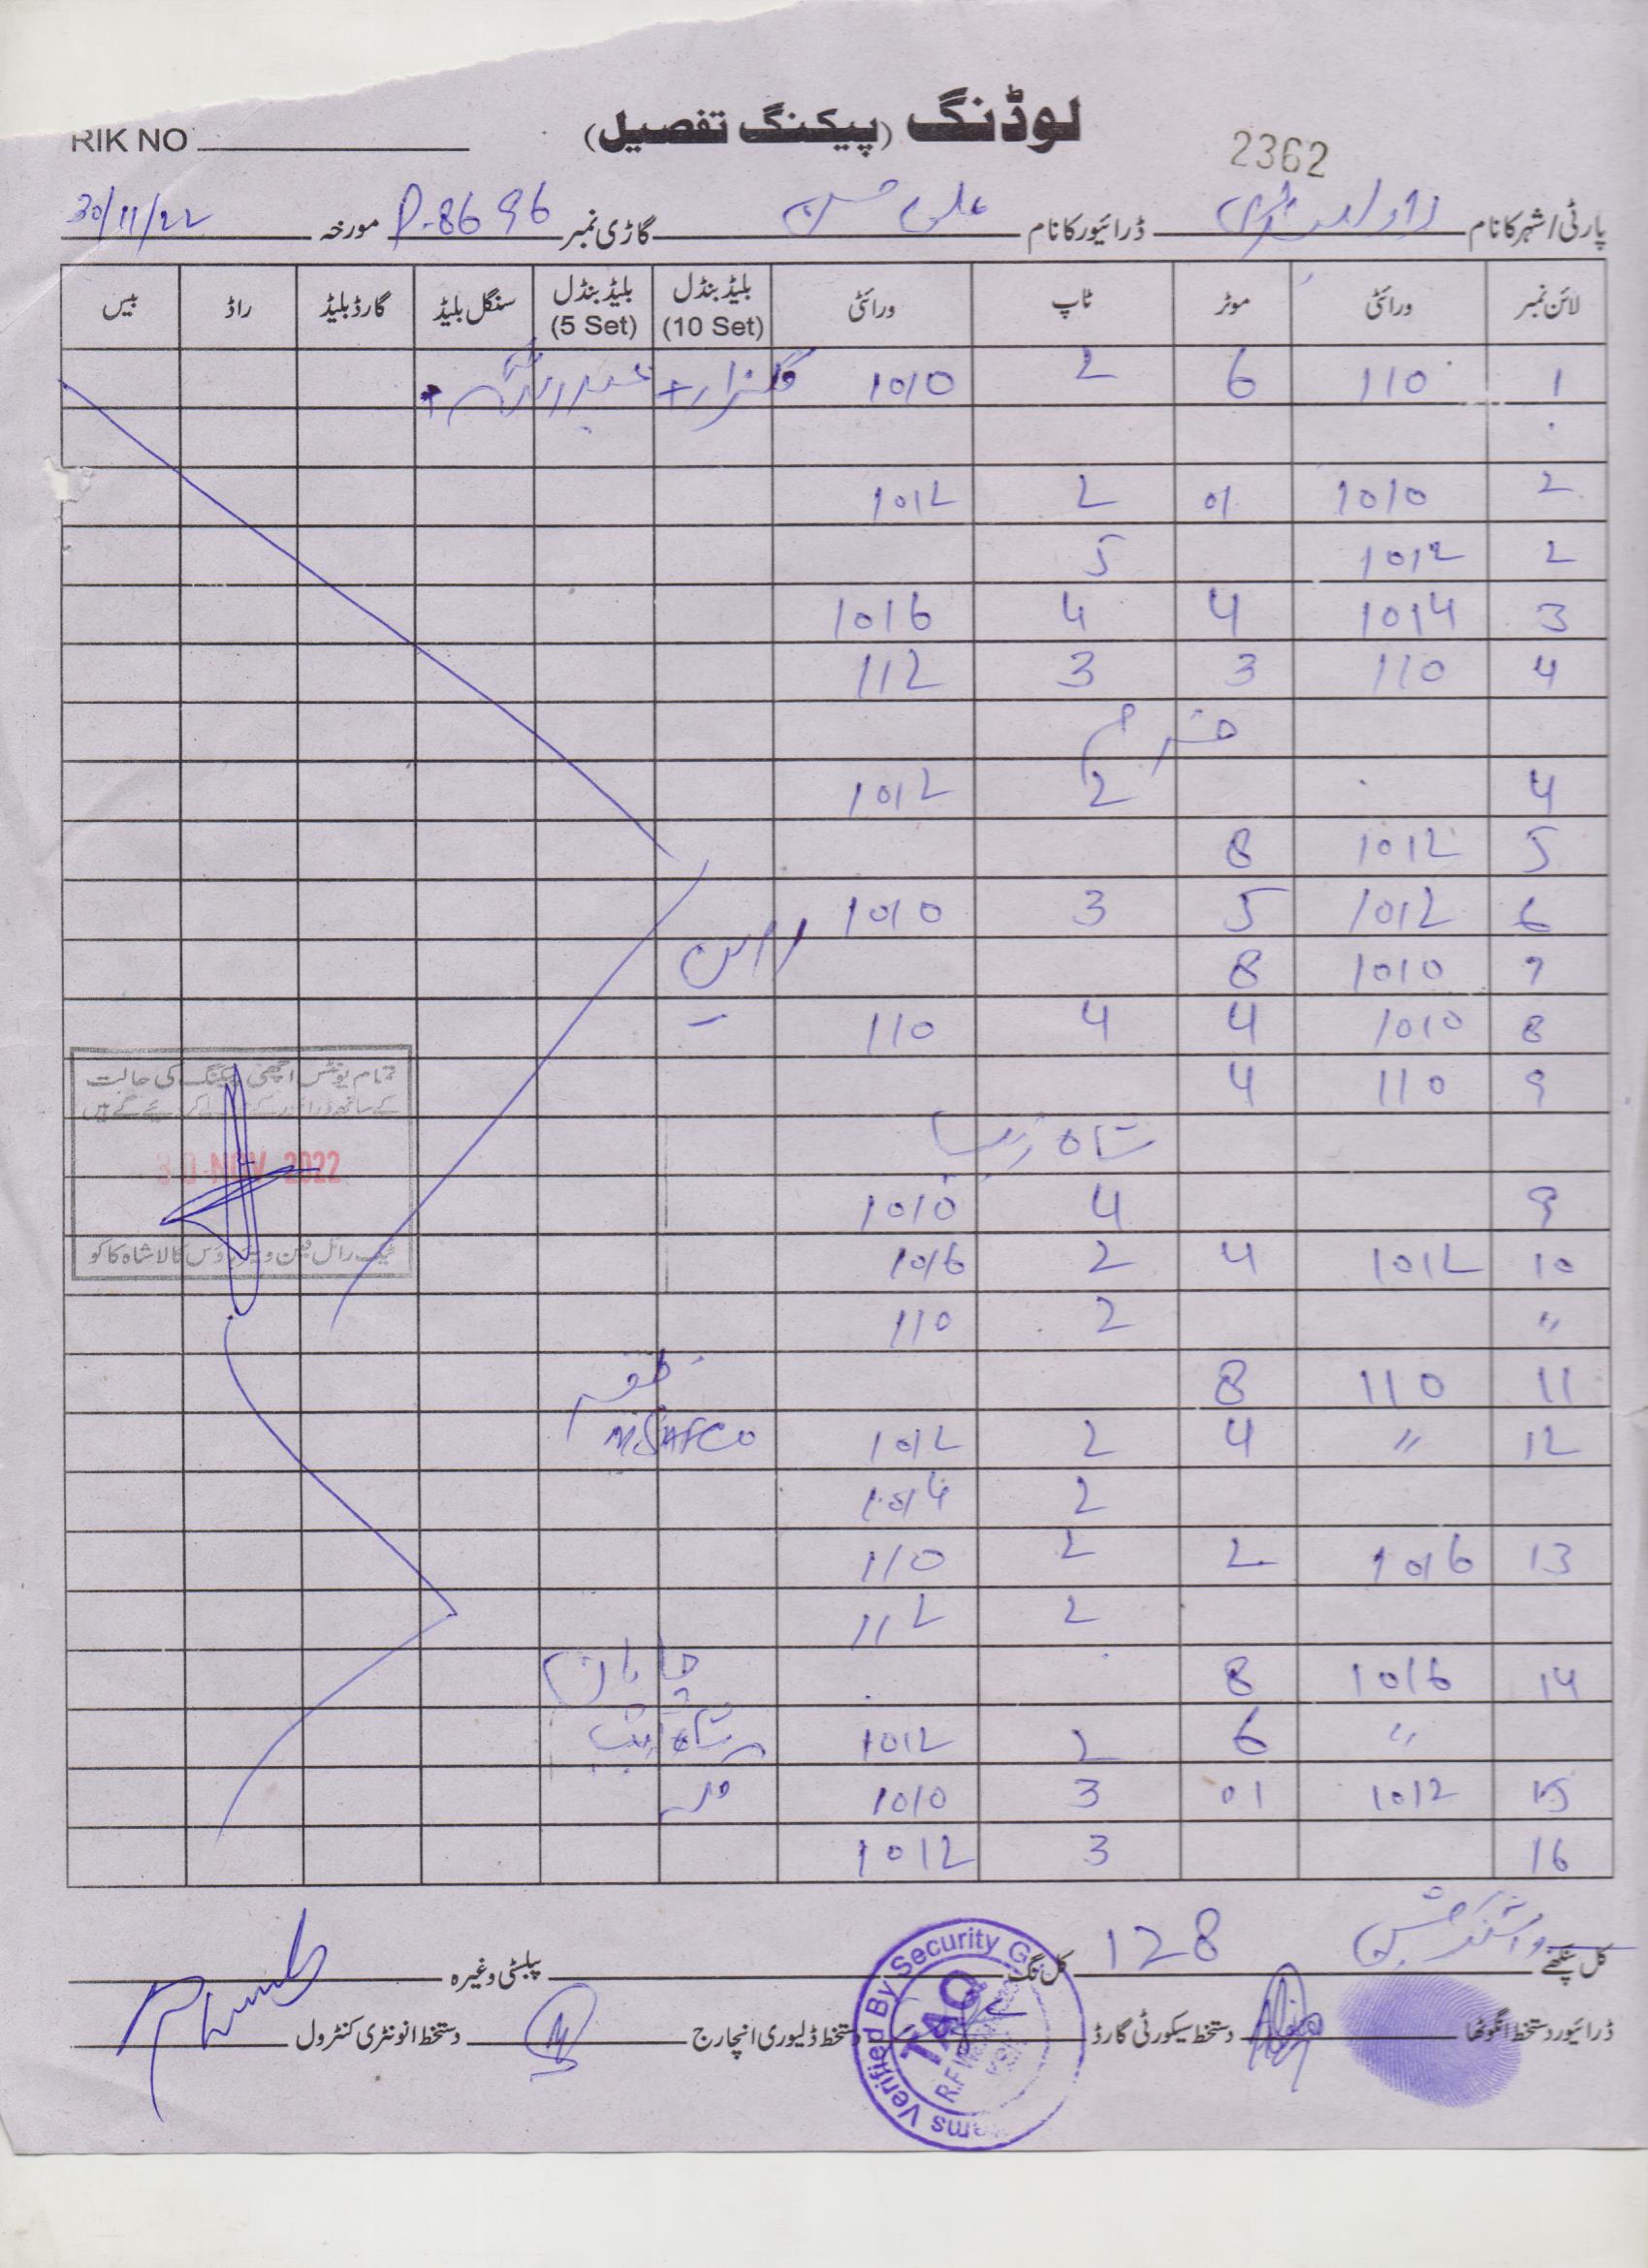 لوڈنگ (پیکنگ تفصیل)
RIK NO
2362
پارٹی/شہر کا نام راولپنڈی ڈرائیور کا نام علی حسن گاڑی نمبر P-8696 مورخہ 30/11/22
لائن نمبر ورائٹی موٹر ٹاپ ورائٹی بلیڈ بنڈل (10 Set) بلیڈ بنڈل (5 Set) سنگل بلیڈ گارڈ بلیڈ راڈ بیس
1 110 6 2 1010 گلزار + عبداللہ
2 1010 01 2 1012
2 1012 5
3 1014 4 4 1016
4 110 3 3 112
4 2 1012
5 1012 8
6 1012 5 3 1010
7 1010 8
8 1010 4 4 110
9 110 4
شاہ زیب
9 4 1010
10 1012 4 2 1016
" 2 110
11 110 8
12 " 4 2 1012
2 1014
13 1016 2 2 110
2 112
14 1016 8
" 6 2 1012 شاہ زیب
15 1012 01 3 1010
16 3 1012
تمام یونٹس اچھی پیکنگ کی حالت
کے ساتھ ڈرائیور کے
30 NOV 2022
کالا شاہ کاکو
کل پنکھے کل نگ 128 پبلٹی وغیرہ
ڈرائیور دستخط انگوٹھا دستخط سیکورٹی گارڈ دستخط ڈلیوری انچارج دستخط انونٹری کنٹرول
Verified By Security
TAQ
R.F